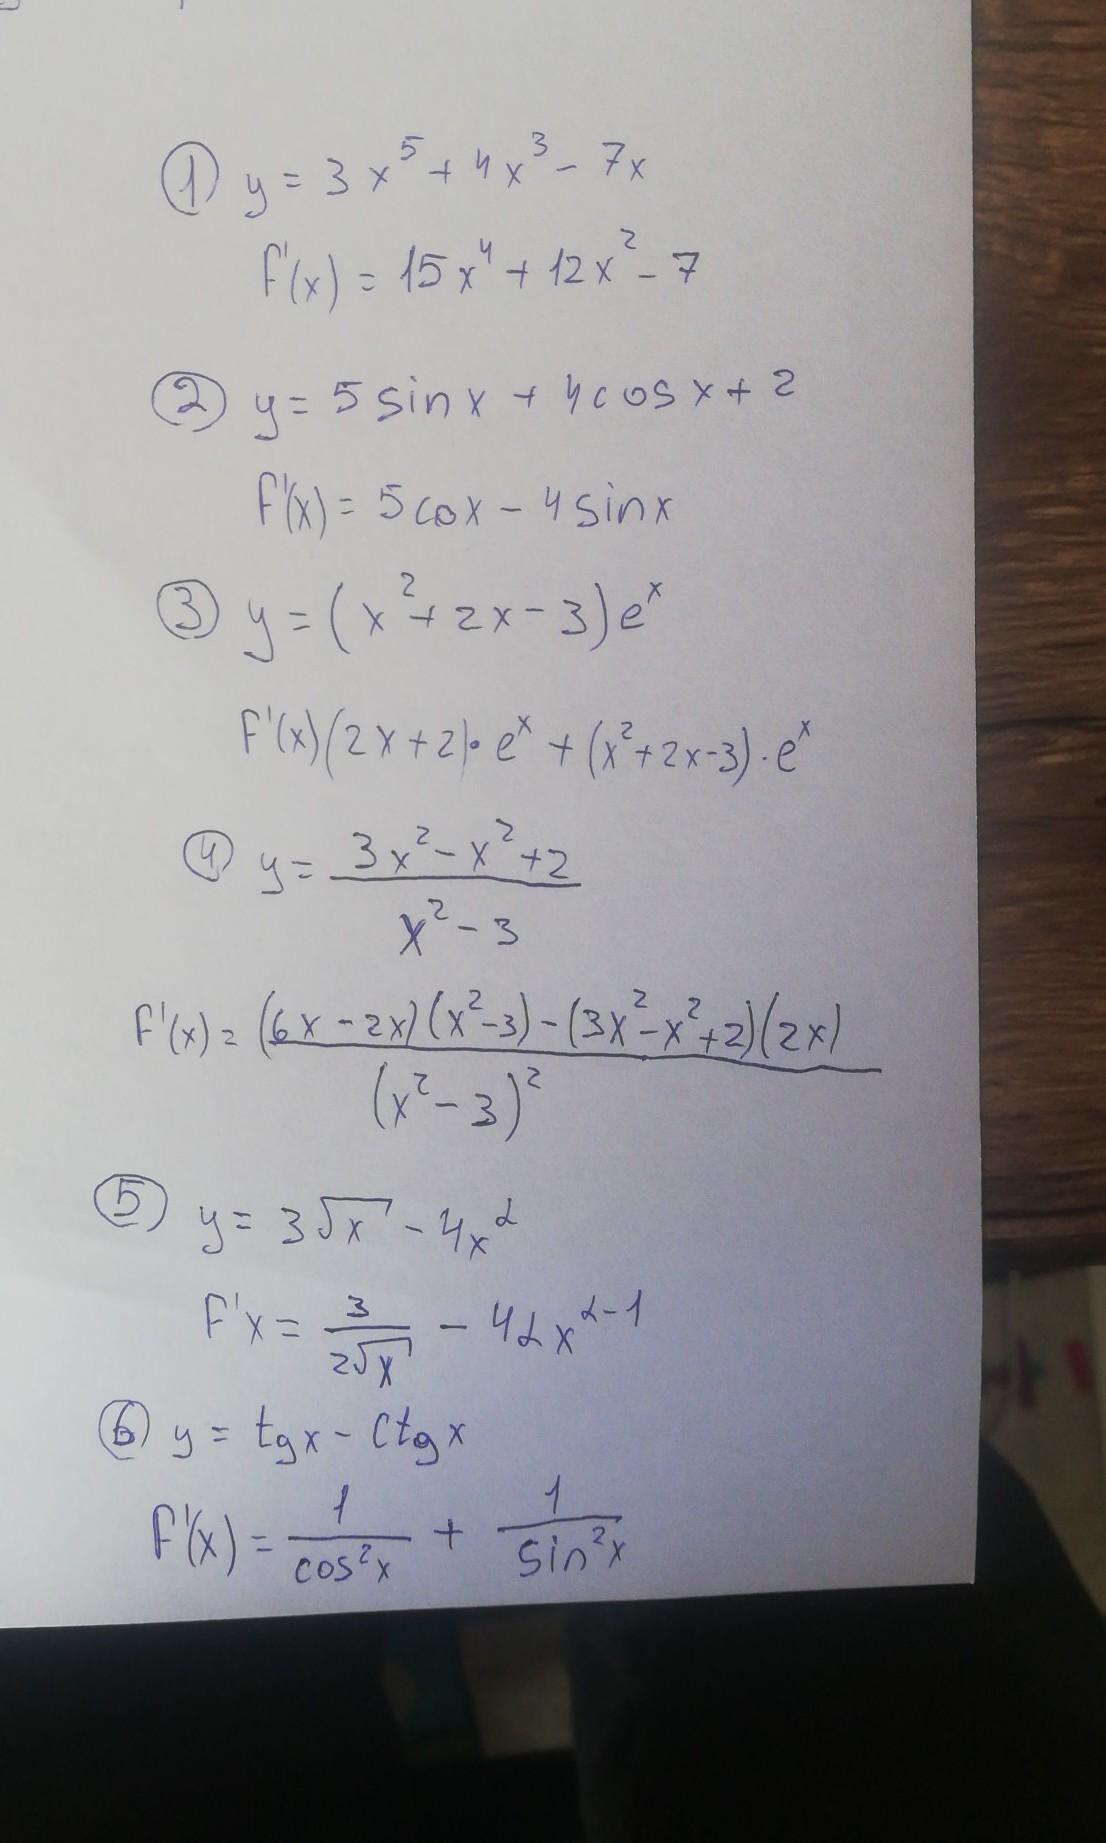 ① y = 3x⁵ + 4x³ - 7x
F'(x) = 15x⁴ + 12x² - 7
② y = 5 sin x + 4 cos x + 2
F'(x) = 5 cox - 4 sin x
③ y = (x² + 2x - 3)eˣ
F'(x)(2x + 2) · eˣ + (x² + 2x - 3) · eˣ
④ y = (3x² - x² + 2) / (x² - 3)
F'(x) = ((6x - 2x)(x² - 3) - (3x² - x² + 2)(2x)) / (x² - 3)²
⑤ y = 3√x - 4x^α
F'x = 3/(2√x) - 4αx^(α-1)
⑥ y = tgx - ctgx
F'(x) = 1/cos²x + 1/sin²x